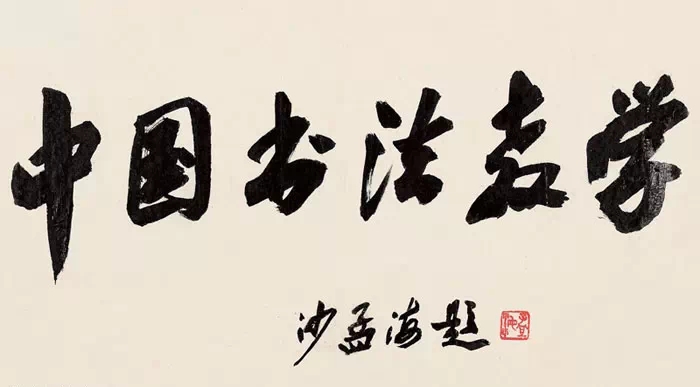 中国书法教学
沙孟海题